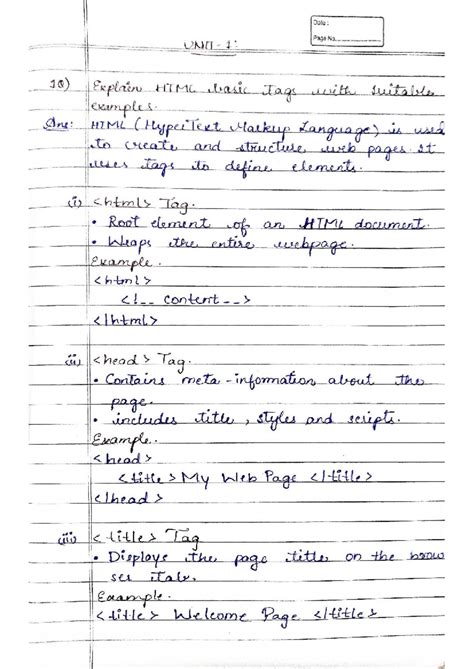 Date :
Page No.
UNIT-1:
10) Explain HTML basic Tags with suitable
examples.
Ans: HTML (HyperText Markup Language) is used
to create and structure web pages. It
uses tags to define elements.
(i) <html> Tag.
• Root element of an HTML document.
• Wraps the entire webpage.
Example.
<html>
<!-- content -->
</html>
(ii) <head> Tag.
• Contains meta-information about the
page.
• includes title, styles and scripts.
Example.
<head>
<title> My Web Page </title>
</head>
(iii) <title> Tag
• Displays the page title on the brow
ser tab.
Example.
<title> Welcome Page </title>